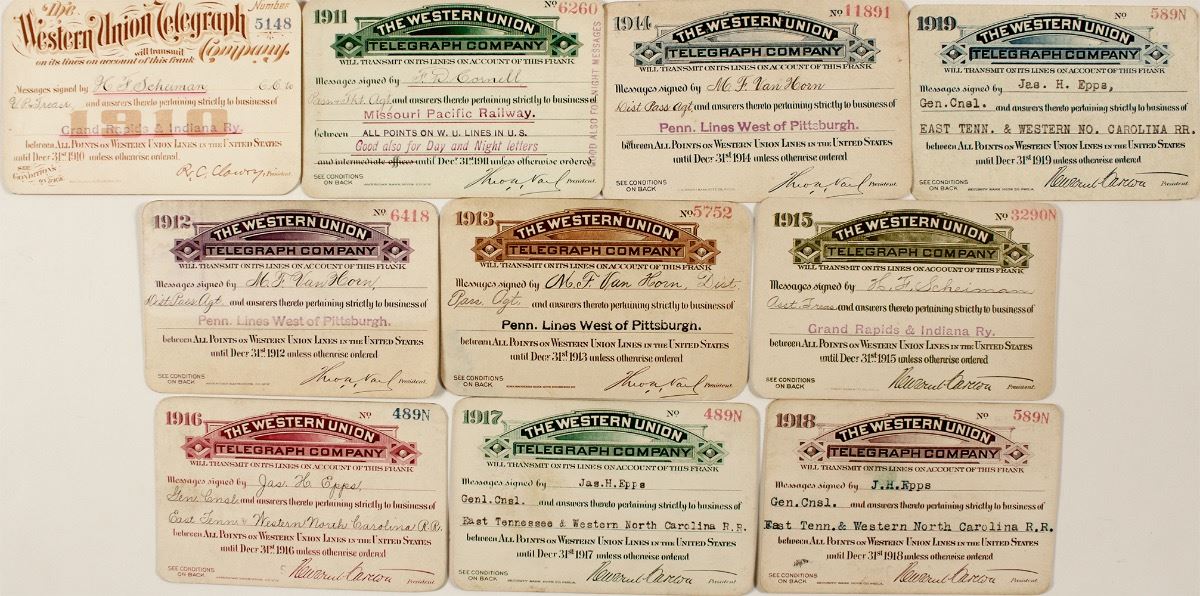 The Number
Western Union Telegraph 5148
will transmit Company.
on its lines on account of this frank
Messages signed by H F Scheiman
and answers thereto pertaining strictly to business of
1910
Grand Rapids & Indiana Ry.
between ALL POINTS ON WESTERN UNION LINES IN THE UNITED STATES
until Decr 31st 1910 unless otherwise ordered.
SEE CONDITIONS OVER R. C. Clowry, President.
1911 No 6260
THE WESTERN UNION
TELEGRAPH COMPANY
WILL TRANSMIT ON ITS LINES ON ACCOUNT OF THIS FRANK
Messages signed by Cornell
and answers thereto pertaining strictly to business of
Missouri Pacific Railway.
between ALL POINTS ON W. U. LINES IN U.S.
Good also for Day and Night letters
and intermediate offices until Decr 31st 1911 unless otherwise ordered
SEE CONDITIONS
ON BACK
President.
GOOD ALSO FOR NIGHT MESSAGES
1914 No 11891
THE WESTERN UNION
TELEGRAPH COMPANY
WILL TRANSMIT ON ITS LINES ON ACCOUNT OF THIS FRANK
Messages signed by M. F. Van Horn
Dist Pass Agt, and answers thereto pertaining strictly to business of
Penn. Lines West of Pittsburgh.
between ALL POINTS ON WESTERN UNION LINES IN THE UNITED STATES
until Decr 31st 1914 unless otherwise ordered
SEE CONDITIONS
ON BACK
President.
1919 No 589N
THE WESTERN UNION
TELEGRAPH COMPANY
WILL TRANSMIT ON ITS LINES ON ACCOUNT OF THIS FRANK
Messages signed by Jas. H. Epps,
Gen. Cnsl. and answers thereto pertaining strictly to business of
EAST TENN. & WESTERN NO. CAROLINA RR.
between ALL POINTS ON WESTERN UNION LINES IN THE UNITED STATES
until Decr 31st 1919 unless otherwise ordered
SEE CONDITIONS
ON BACK
Newcomb Carlton President.
1912 No 6418
THE WESTERN UNION
TELEGRAPH COMPANY
WILL TRANSMIT ON ITS LINES ON ACCOUNT OF THIS FRANK
Messages signed by M. F. Van Horn
Dist Pass Agt and answers thereto pertaining strictly to business of
Penn. Lines West of Pittsburgh.
between ALL POINTS ON WESTERN UNION LINES IN THE UNITED STATES
until Decr 31st 1912 unless otherwise ordered
SEE CONDITIONS
ON BACK
President.
1913 No 5752
THE WESTERN UNION
TELEGRAPH COMPANY
WILL TRANSMIT ON ITS LINES ON ACCOUNT OF THIS FRANK
Messages signed by M. F. Van Horn, Dist.
Pass. Agt. and answers thereto pertaining strictly to business of
Penn. Lines West of Pittsburgh.
between ALL POINTS ON WESTERN UNION LINES IN THE UNITED STATES
until Decr 31st 1913 unless otherwise ordered
SEE CONDITIONS
ON BACK
President.
1915 No 3290N
THE WESTERN UNION
TELEGRAPH COMPANY
WILL TRANSMIT ON ITS LINES ON ACCOUNT OF THIS FRANK
Messages signed by H. F. Scheiman
Asst. Treas and answers thereto pertaining strictly to business of
Grand Rapids & Indiana Ry.
between ALL POINTS ON WESTERN UNION LINES IN THE UNITED STATES
until Decr 31st 1915 unless otherwise ordered
SEE CONDITIONS
ON BACK
Newcomb Carlton President.
1916 No 489N
THE WESTERN UNION
TELEGRAPH COMPANY
WILL TRANSMIT ON ITS LINES ON ACCOUNT OF THIS FRANK
Messages signed by Jas. H. Epps,
Genl Cnsl and answers thereto pertaining strictly to business of
East Tenn & Western North Carolina R.R.
between ALL POINTS ON WESTERN UNION LINES IN THE UNITED STATES
until Decr 31st 1916 unless otherwise ordered
SEE CONDITIONS
ON BACK
Newcomb Carlton President.
1917 No 489N
THE WESTERN UNION
TELEGRAPH COMPANY
WILL TRANSMIT ON ITS LINES ON ACCOUNT OF THIS FRANK
Messages signed by Jas.H.Epps
Genl.Cnsl. and answers thereto pertaining strictly to business of
East Tennessee & Western North Carolina R.R.
between ALL POINTS ON WESTERN UNION LINES IN THE UNITED STATES
until Decr 31st 1917 unless otherwise ordered
SEE CONDITIONS
ON BACK
Newcomb Carlton President.
1918 No 589N
THE WESTERN UNION
TELEGRAPH COMPANY
WILL TRANSMIT ON ITS LINES ON ACCOUNT OF THIS FRANK
Messages signed by J.H.Epps
Gen.Cnsl. and answers thereto pertaining strictly to business of
East Tenn.& Western North Carolina R.R.
between ALL POINTS ON WESTERN UNION LINES IN THE UNITED STATES
until Decr 31st 1918 unless otherwise ordered
SEE CONDITIONS
ON BACK
Newcomb Carlton President.